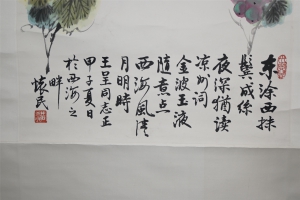 东涂西抹
鬓成丝
夜深犹读
凉州词
金波玉液
随意点
西海风清
月明时
王呈同志正
甲子夏日
于西海之
畔
怀民